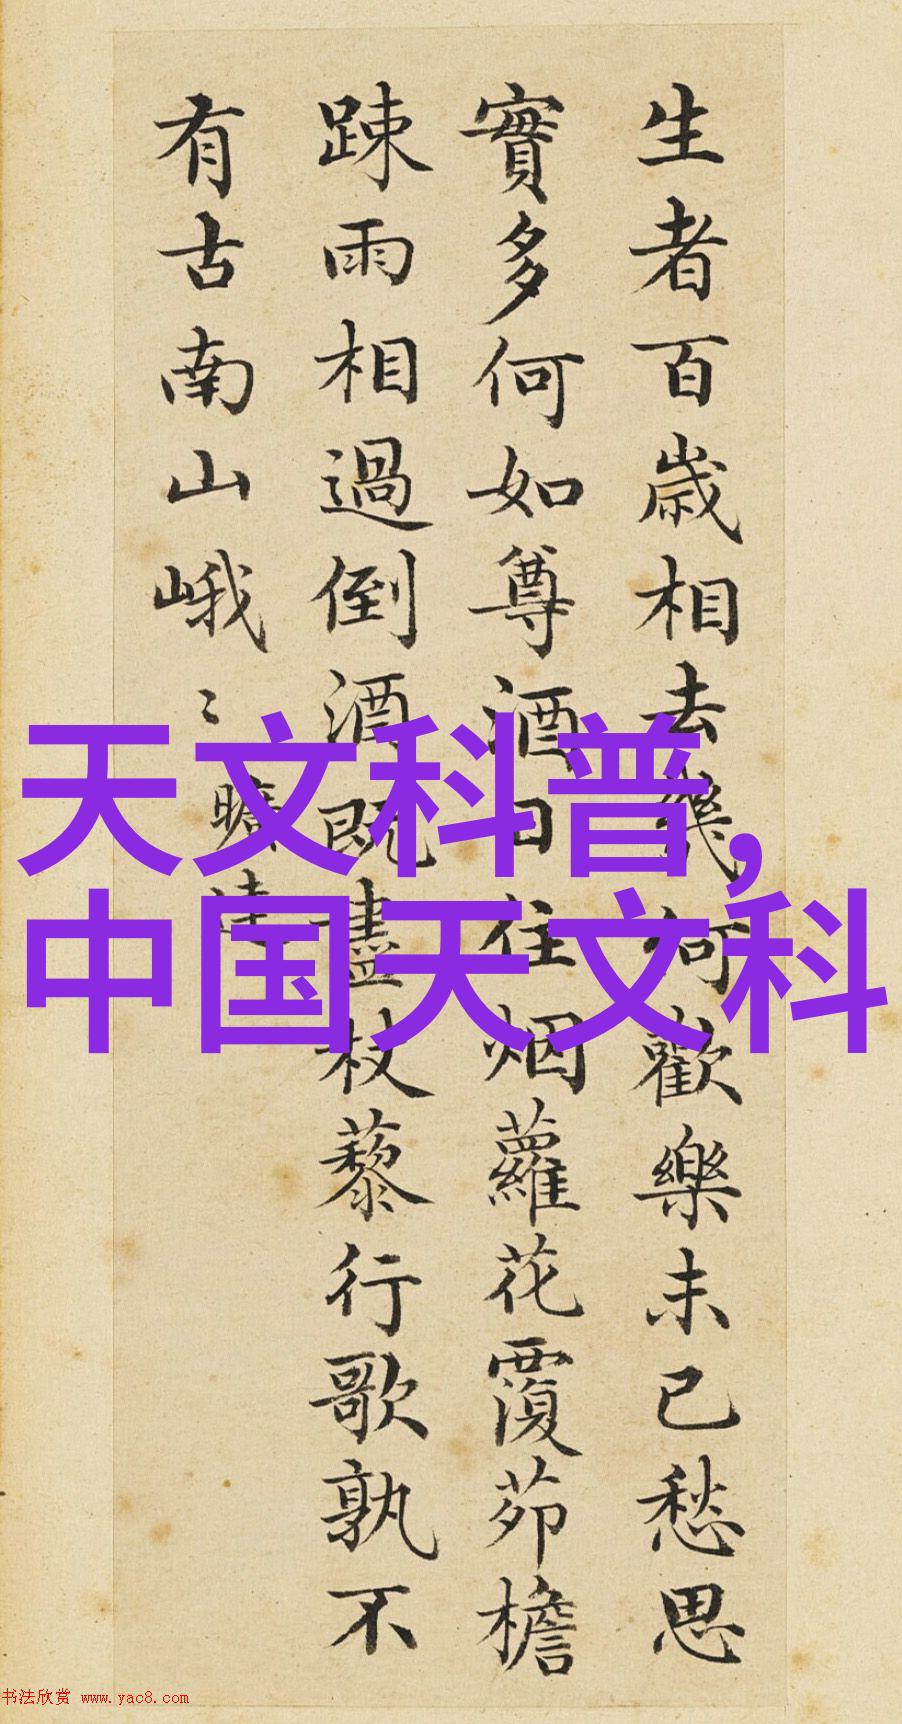 生者百歲相去幾何歡樂未已愁思
實多何如尊酒日往烟蘿花覆茆檐
踈雨相過倒酒既盡杖藜行歌孰不
有古南山峨〻
曠達
天文科普,
中国天文科
书法欣赏 www.yac8.com